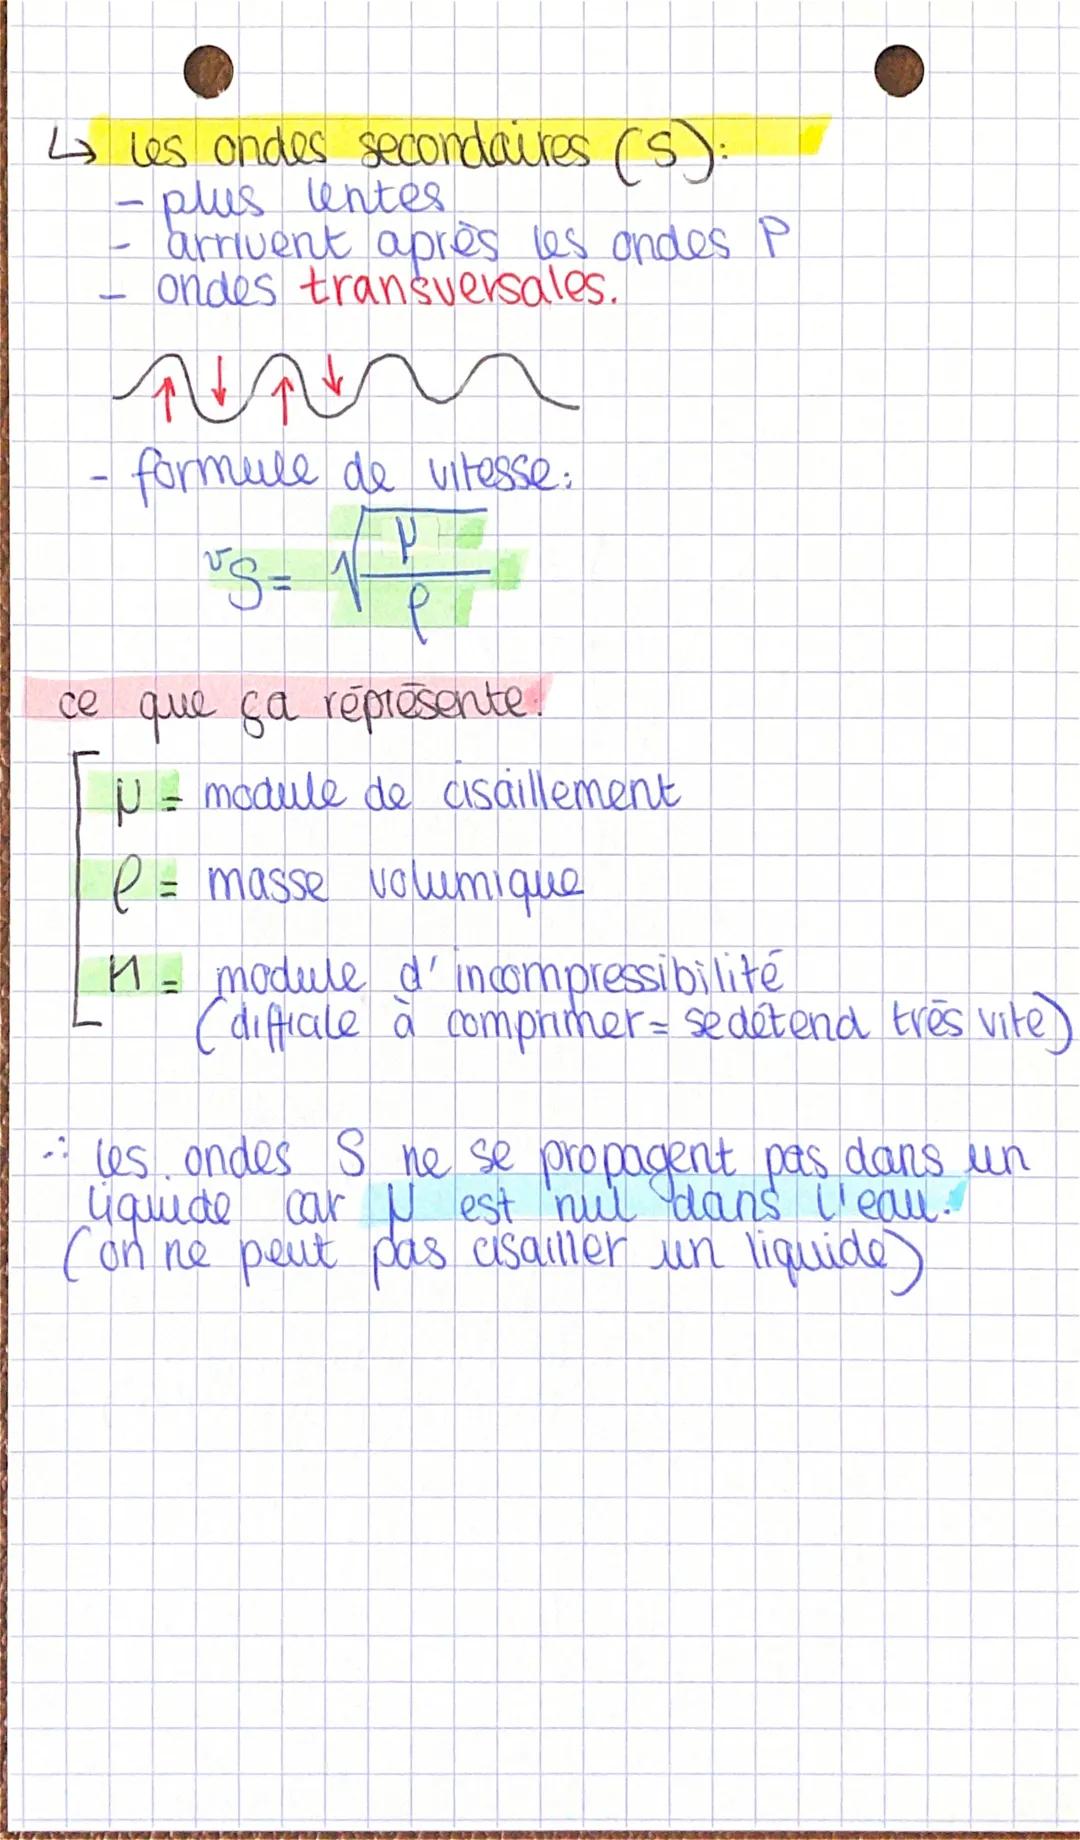 ↳ les ondes secondaires (S):
- plus lentes
- arrivent après les ondes P
- ondes transversales.
- formule de vitesse:
vS = √(μ/ρ)
ce que ça réprésente:
μ = module de cisaillement
ρ = masse volumique
K = module d'incompressibilité
(difficile à comprimer = se détend très vite)
∴ les ondes S ne se propagent pas dans un
liquide car μ est nul dans l'eau.
(on ne peut pas cisailler un liquide)